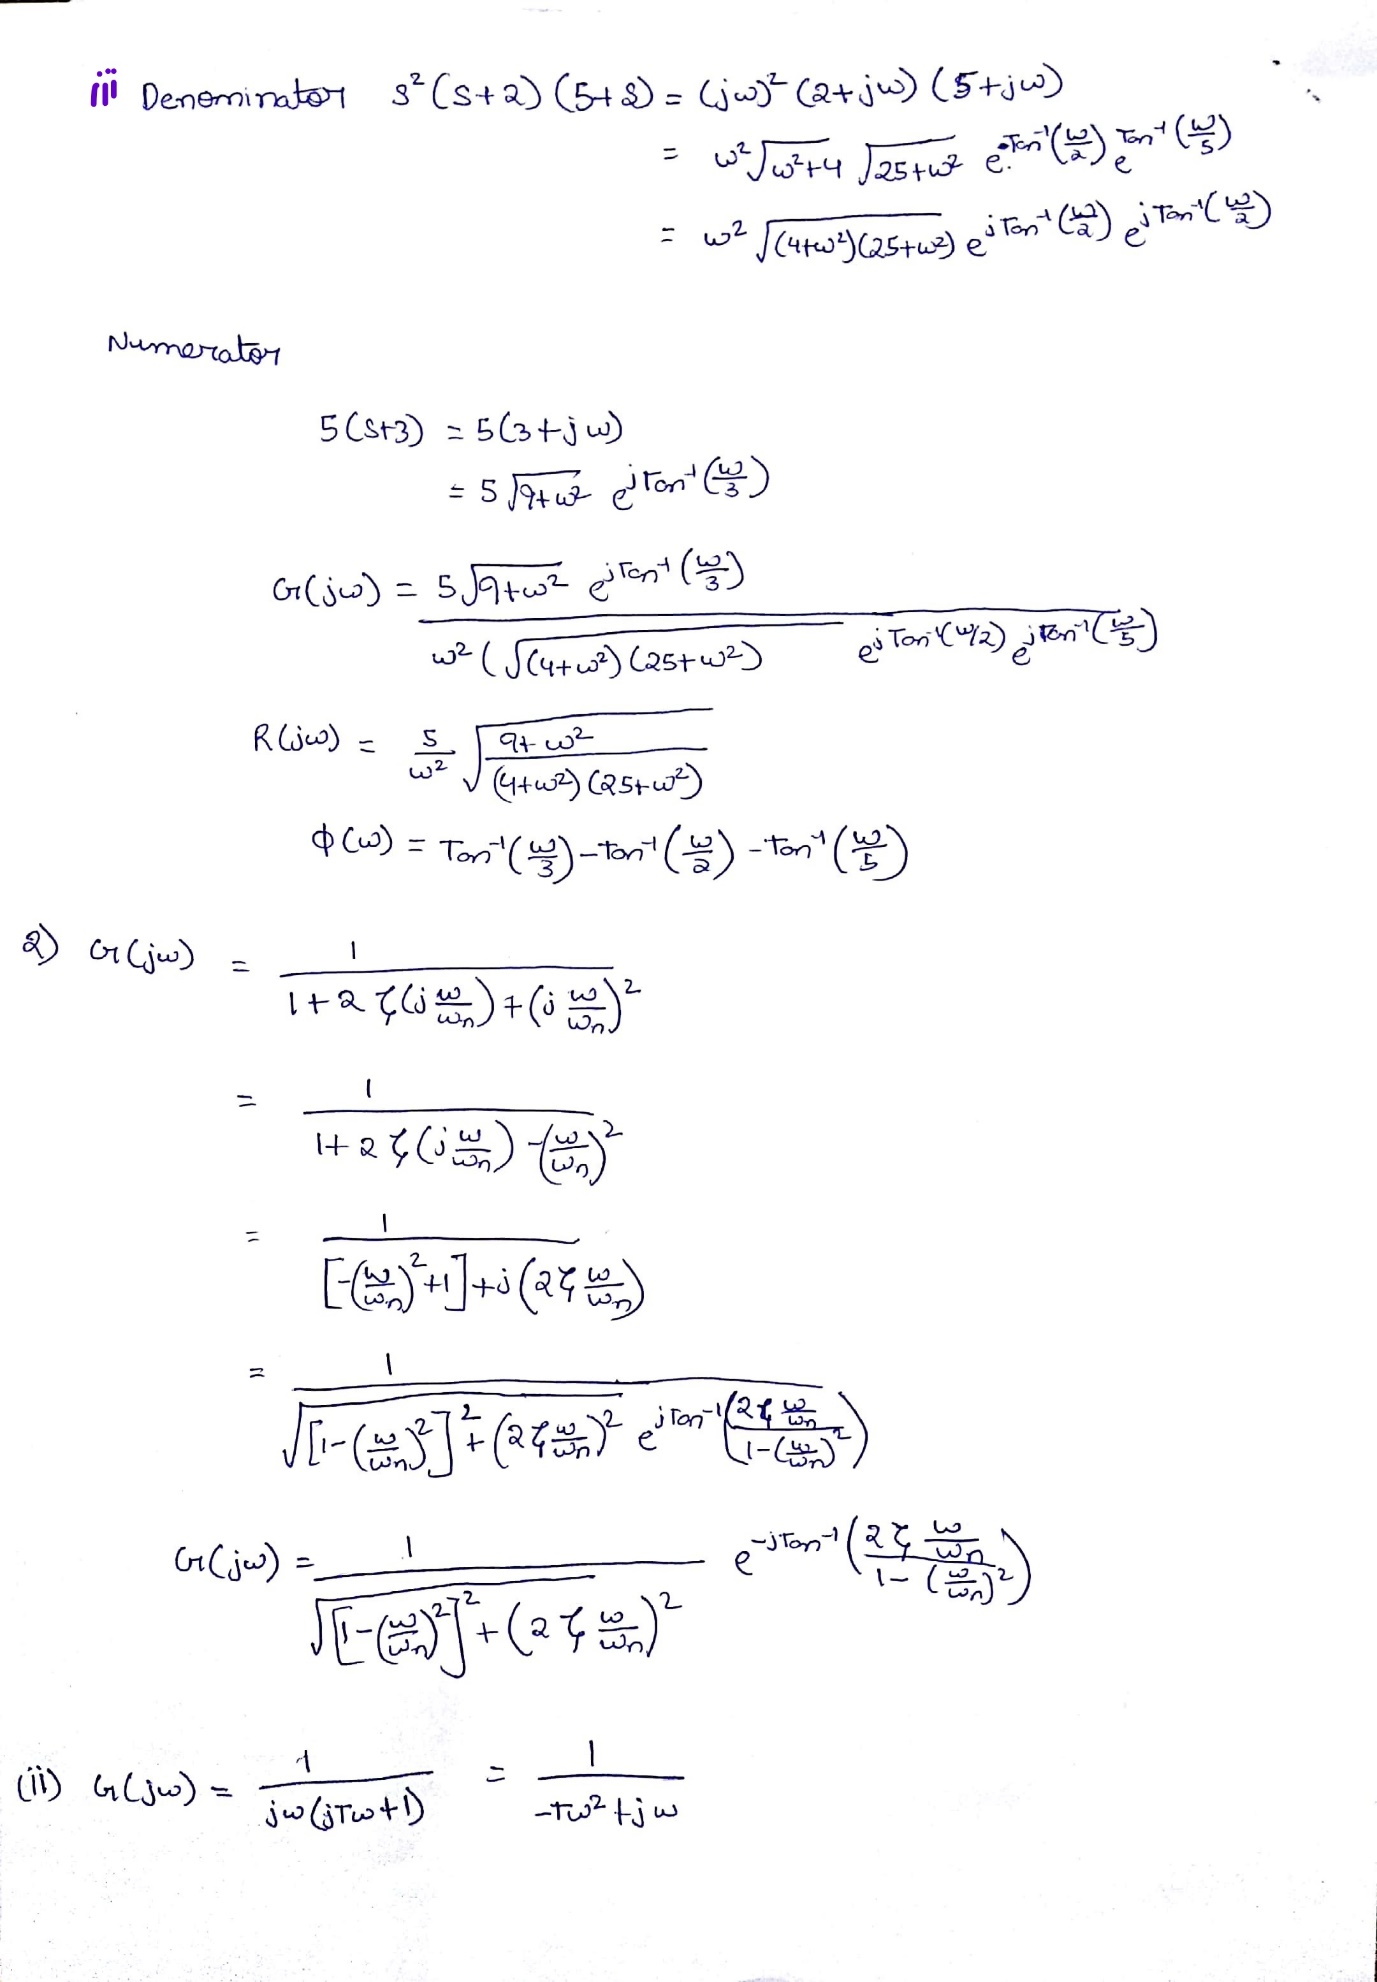 iii Denominator s²(s+2)(5+s) = (jω)² (2+jω) (5+jω)
= ω²√(ω²+4) √(25+ω²) e^(Tan⁻¹(ω/2)) e^(Tan⁻¹(ω/5))
= ω² √((4+ω²)(25+ω²)) e^(jTan⁻¹(ω/2)) e^(jTan⁻¹(ω/2))
Numerator
5(s+3) = 5(3+jω)
= 5√(9+ω²) e^(jTan⁻¹(ω/3))
G(jω) = 5√(9+ω²) e^(jTan⁻¹(ω/3))
ω² (√((4+ω²)(25+ω²)) e^(jTan⁻¹(ω/2)) e^(jTan⁻¹(ω/5))
R(jω) = 5/ω² √((9+ω²)/((4+ω²)(25+ω²)))
ϕ(ω) = Tan⁻¹(ω/3) – tan⁻¹(ω/2) – tan⁻¹(ω/5)
2) G(jω) = 1/(1+2ζ(jω/ωn)+(jω/ωn)²)
= 1/(1+2ζ(jω/ωn) –(ω/ωn)²)
= 1/([-(ω/ωn)²+1]+j(2ζω/ωn))
= 1/(√([1-(ω/ωn)²]²+(2ζω/ωn)²) e^(jTan⁻¹((2ζω/ωn)/(1-(ω/ωn)²))))
G(jω) = 1/√([1-(ω/ωn)²]²+(2ζω/ωn)²) e^(-jTan⁻¹((2ζω/ωn)/(1-(ω/ωn)²)))
(ii) G(jω) = 1/(jω(jTω+1)) = 1/(-Tω²+jω)